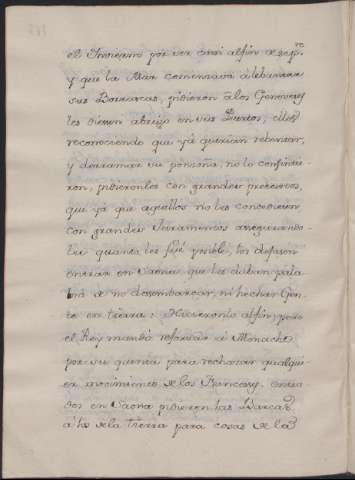 el Invierno por ver casi alfin de sepre.
y que la Mar comensava à lebantar
sus Borrascas, pidieron alos Genoveses
les diesen abrigo en sus Puertos, ellos
reconociendo que yà querian rebentar,
y derramar su ponsoña, no lo consintie-
ron, pidieronles con grandes pretextos,
que yà que aquellos no les concediesen
con grandes Juramentos asegurando-
les quanto les fue posible, los dejasen
entrar en Saona que les daban pala-
bra de no desembarcar, ni hechar Gen-
te en tierra: Hicieronlo alfin, pero
el Rey mandò reforzar à Monaco
por su quenta para rechasar qualqui-
er movimiento de los Franceses. Entra-
dos en Saona pidieron las Barcas
a los de la tierra para cosas de la